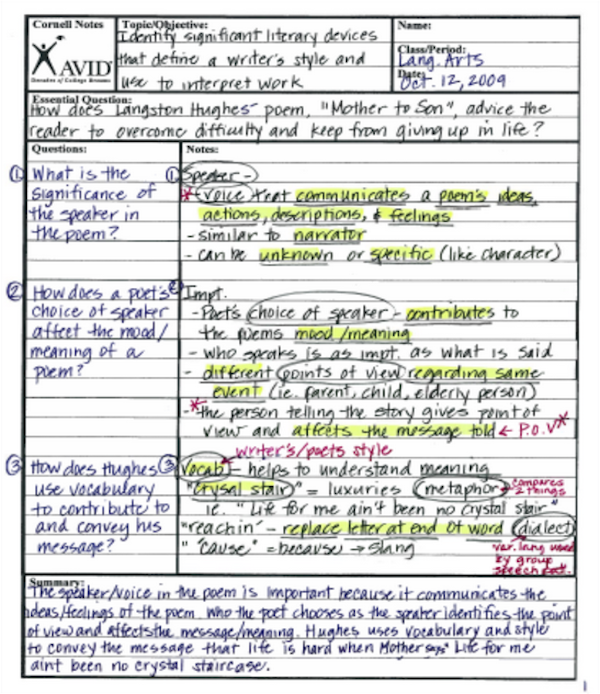 Cornell Notes
AVID
Decades of College Dreams
Topic/Objective:
Identify significant literary devices
that define a writer's style and
use to interpret work
Name:
Class/Period:
Lang. Arts
Date:
Oct. 12, 2009
Essential Question:
How does Langston Hughes' poem, "Mother to Son", advice the
reader to overcome difficulty and keep from giving up in life?
Questions:
Notes:
① What is the
significance of
the speaker in
the poem?
① Speaker -
* voice that communicates a poem's ideas,
actions, descriptions, & feelings
- similar to narrator
- can be unknown or specific (like character)
② How does a poet's
choice of speaker
affect the mood/
meaning of a
poem?
② Impt.
- Poet's choice of speaker - contributes to
the poems mood/meaning
- who speaks is as impt. as what is said
- different points of view regarding same
event (ie. parent, child, elderly person)
-* the person telling the story gives point of
view and affects the message told ← P.O.V*
③ How does Hughes
use vocabulary
to contribute to
and convey his
message?
writer's/poets style
③ Vocab - helps to understand meaning
"crysal stair" = luxuries (metaphor) compares
2 things
ie. "Life for me ain't been no crystal stair"
"reachin' - replace letter at end of word (dialect)
" 'cause" = because → slang
var. lang used
by group
speech
Summary:
The speaker/voice in the poem is important because it communicates the
ideas/feelings of the poem. Who the poet chooses as the speaker identifies the point
of view and affects the message/meaning. Hughes uses vocabulary and style
to convey the message that life is hard when Mother says "Life for me
aint been no crystal staircase.
1